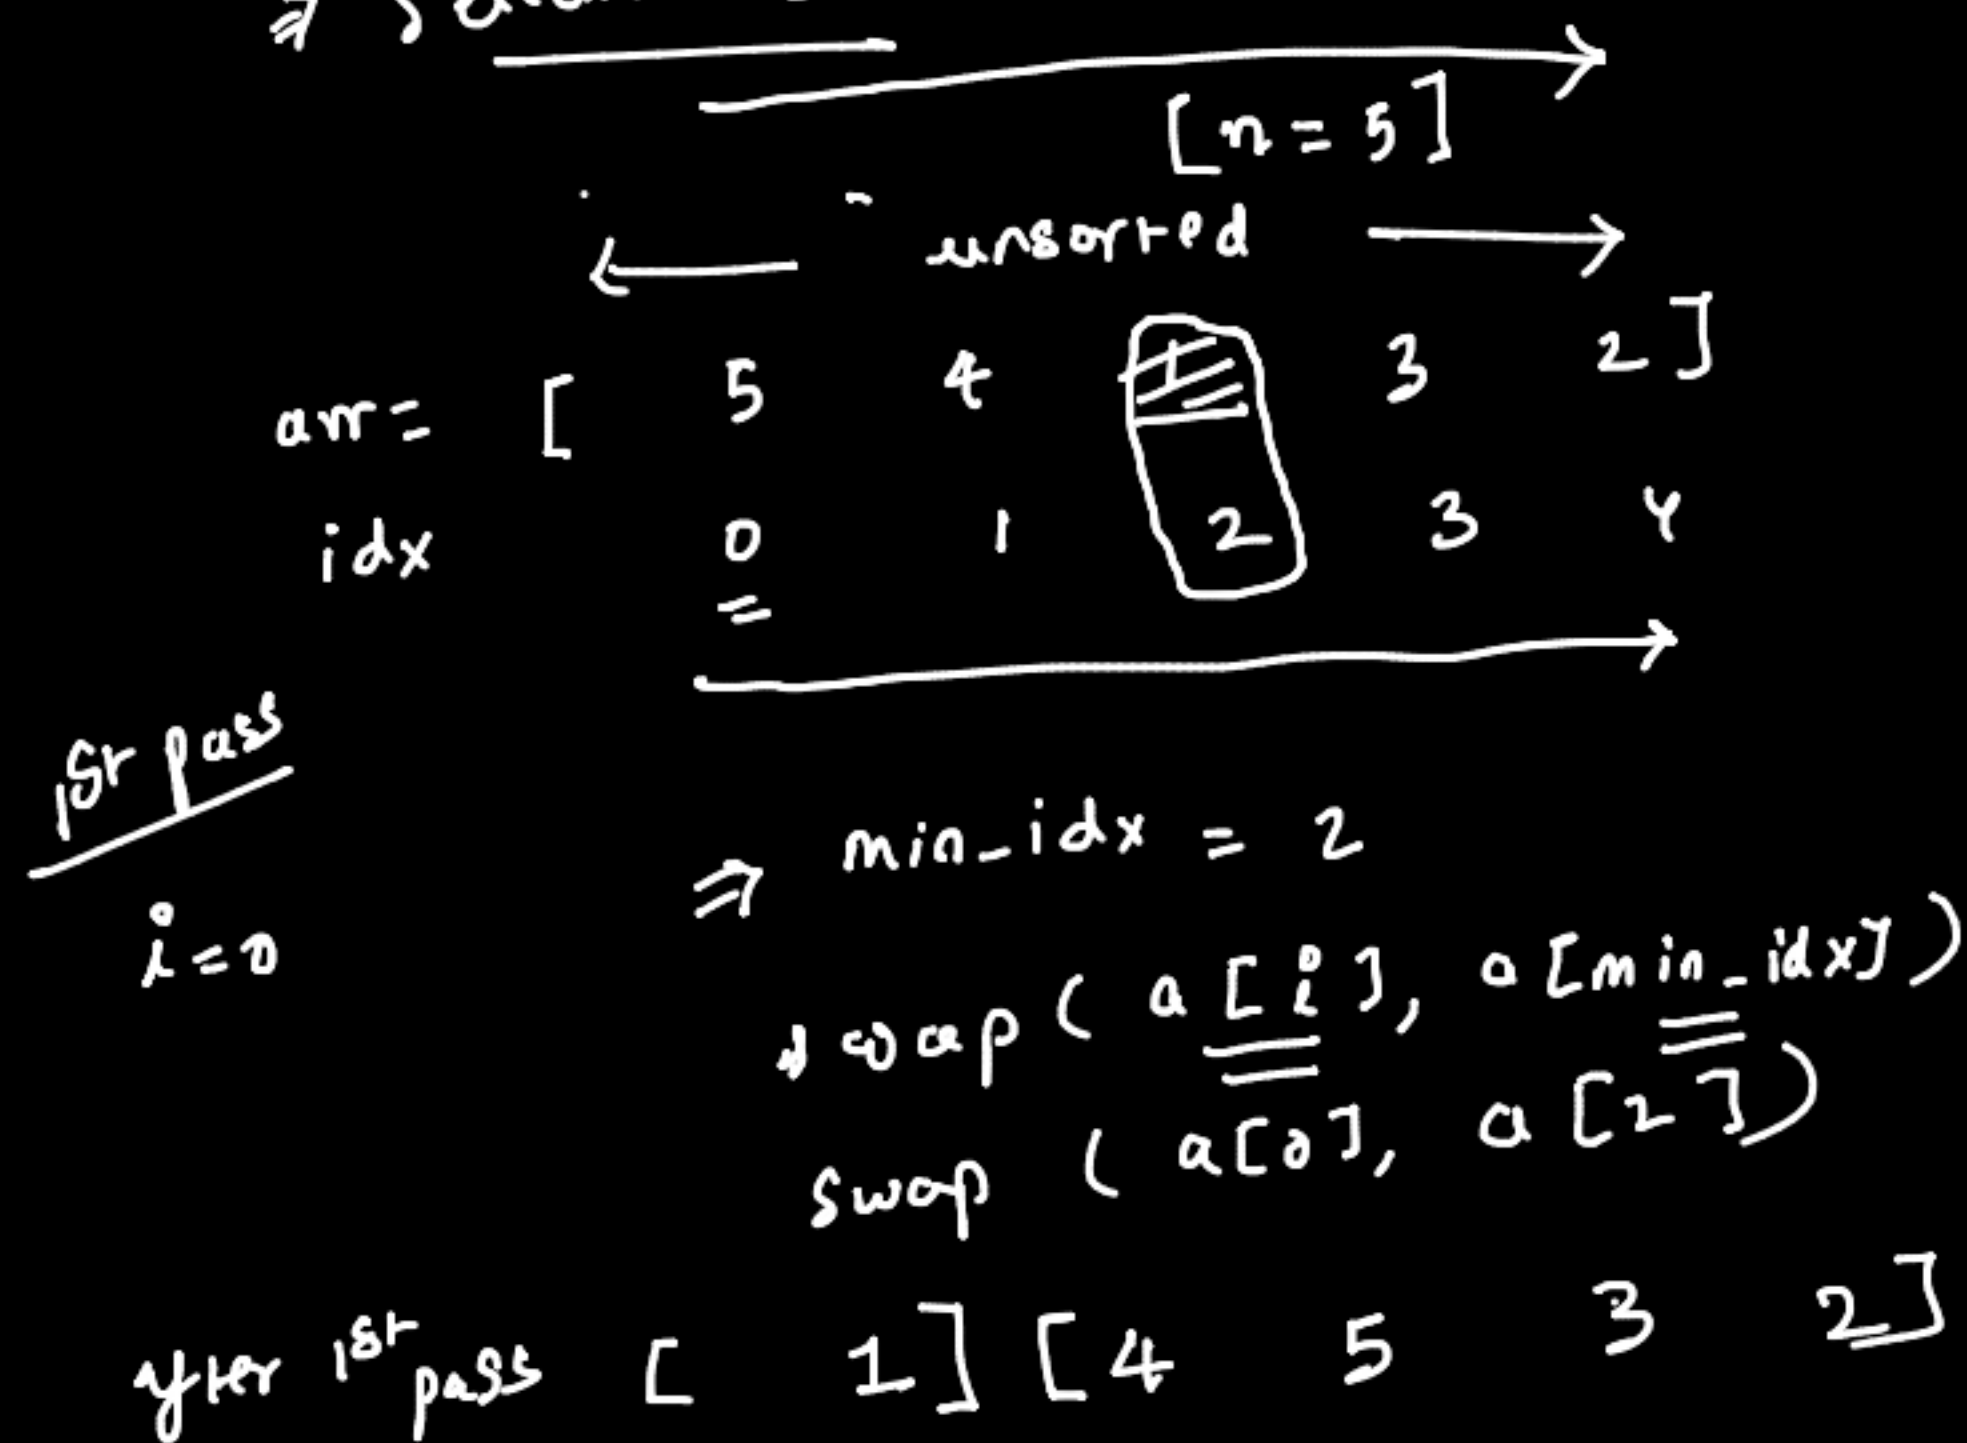 [n = 5]
unsorted
arr = [ 5 4 1 3 2 ]
idx 0 1 2 3 4
1st pass
⇒ min_idx = 2
i = 0
swap ( a [ i ], a [min_idx] )
swap ( a[0], a [2] )
after 1st pass [ 1 ] [ 4 5 3 2 ]